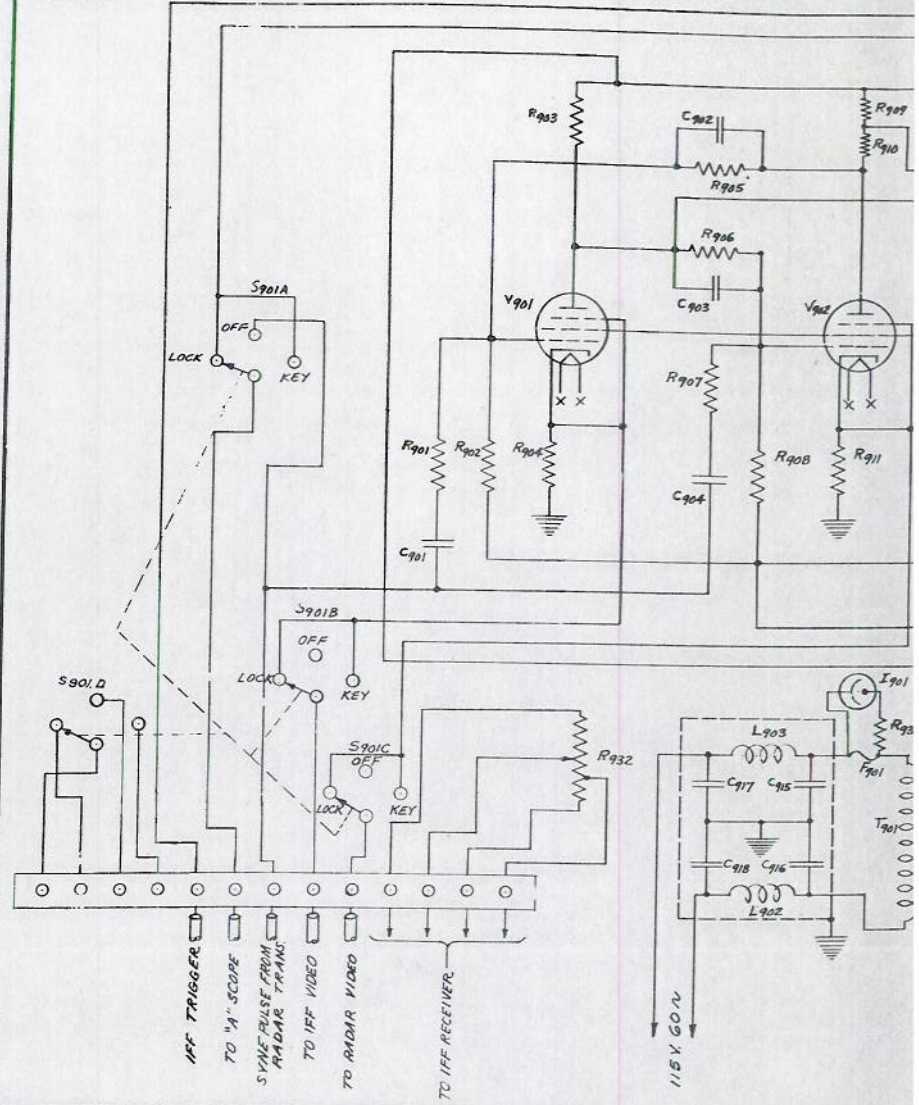 R909
R903
C902
R910
R905
R906
S901A
C903
V901
V902
OFF
LOCK
KEY
R907
R901
R902
R904
R908
R911
C904
C901
S901B
OFF
LOCK
KEY
S901.D
I901
L903
R93
S901C
OFF
R932
F901
C917
C915
LOCK
KEY
T901
C918
C916
L902
IFF TRIGGERS
TO "A" SCOPE
SYNC PULSE FROM
RADAR TRANS.
TO IFF VIDEO
TO RADAR VIDEO
TO IFF RECEIVER
115V. 60~